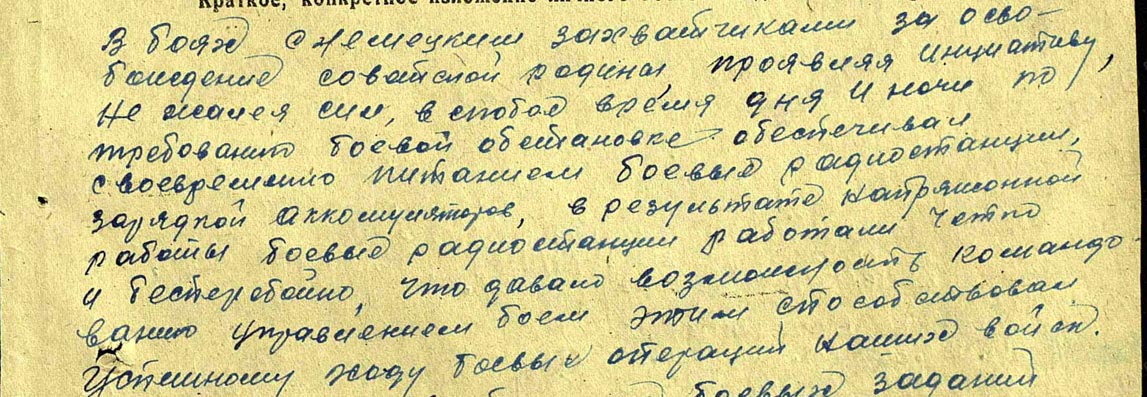 Краткое, конкретное изложение личного
В бояж с немецким захватчиками за осво-
бождение советской родины проявляя инициативу,
не жалея сил, в любое время дня и ночи по
требованию боевой обстановке обеспечивал
своевременно питанием боевые радиостанции,
зарядкой аккомуляторов, в результате напряжонной
работы боевые радиостанции работали четко
и бесперебойно, что давало возможность командо
ванию управлением боем этим способствовал
Успешному ходу боевых операций наших войск.
боевых заданий